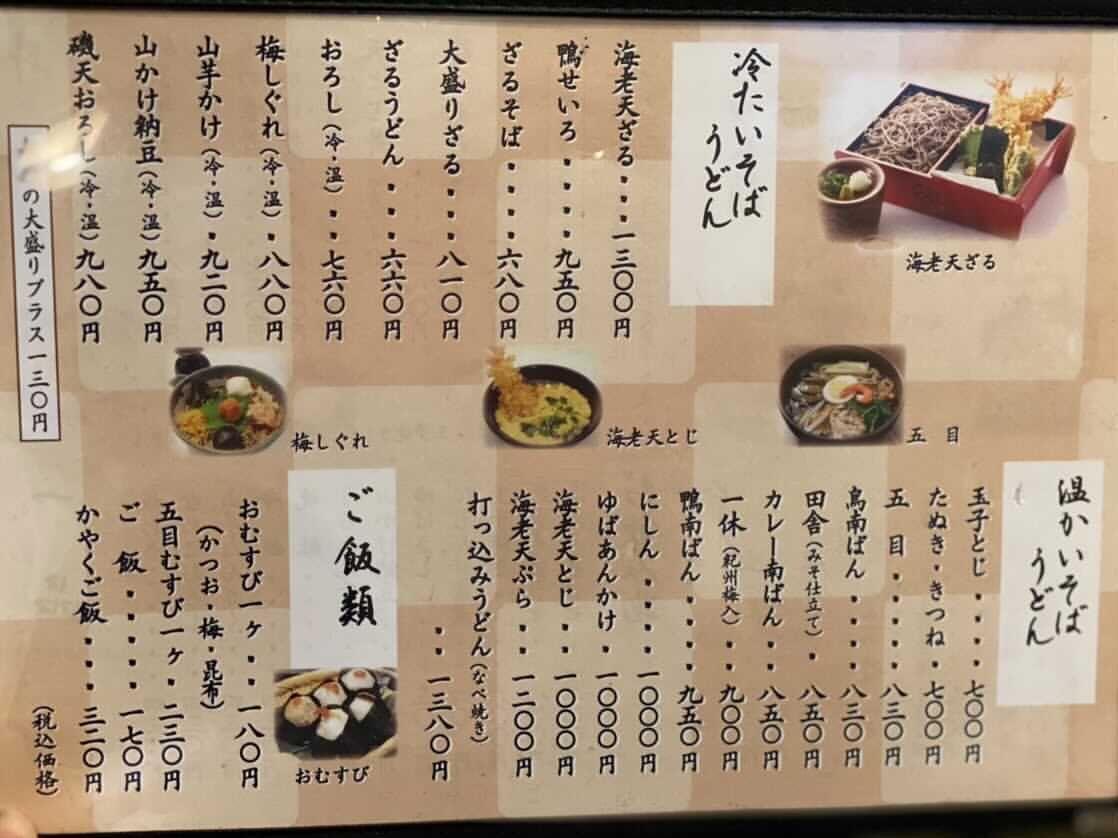 冷たいそば
うどん
海老天ざる・・・・一三〇〇円
鴨せいろ・・・・九五〇円
ざるそば・・・・六八〇円
大盛りざる・・・・八一〇円
ざるうどん・・・六六〇円
おろし(冷・温)・・七六〇円
梅しぐれ(冷・温)・八八〇円
山芋かけ(冷・温)・九二〇円
山かけ納豆(冷・温)九五〇円
磯天おろし(冷・温)九八〇円
の大盛りプラス一三〇円
海老天ざる
五目
海老天とじ
梅しぐれ
温かいそば
うどん
玉子とじ・・・・七〇〇円
たぬき・きつね・七〇〇円
五目・・・・・八三〇円
鳥南ばん・・・・八三〇円
田舎(みそ仕立て)・八五〇円
カレー南ばん・・八五〇円
一休(紀州梅入)・九〇〇円
鴨南ばん・・・・九五〇円
にしん・・・・一〇〇〇円
ゆばあんかけ・・一〇〇〇円
海老天とじ・・一〇〇〇円
海老天ぷら・・一二〇〇円
打っ込みうどん(なべ焼き)
・・一三八〇円
ご飯類
おむすび
おむすび一ヶ・・一八〇円
(かつお・梅・昆布)
五目むすび一ヶ・二三〇円
ご飯・・・・・一七〇円
かやくご飯・・・三二〇円
(税込価格)